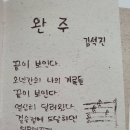 완주
김석진
끝이 보인다.
오년간의 나의 겨울들
끝이 보인다.
열심히 달려왔다.
결승점에 도달하면